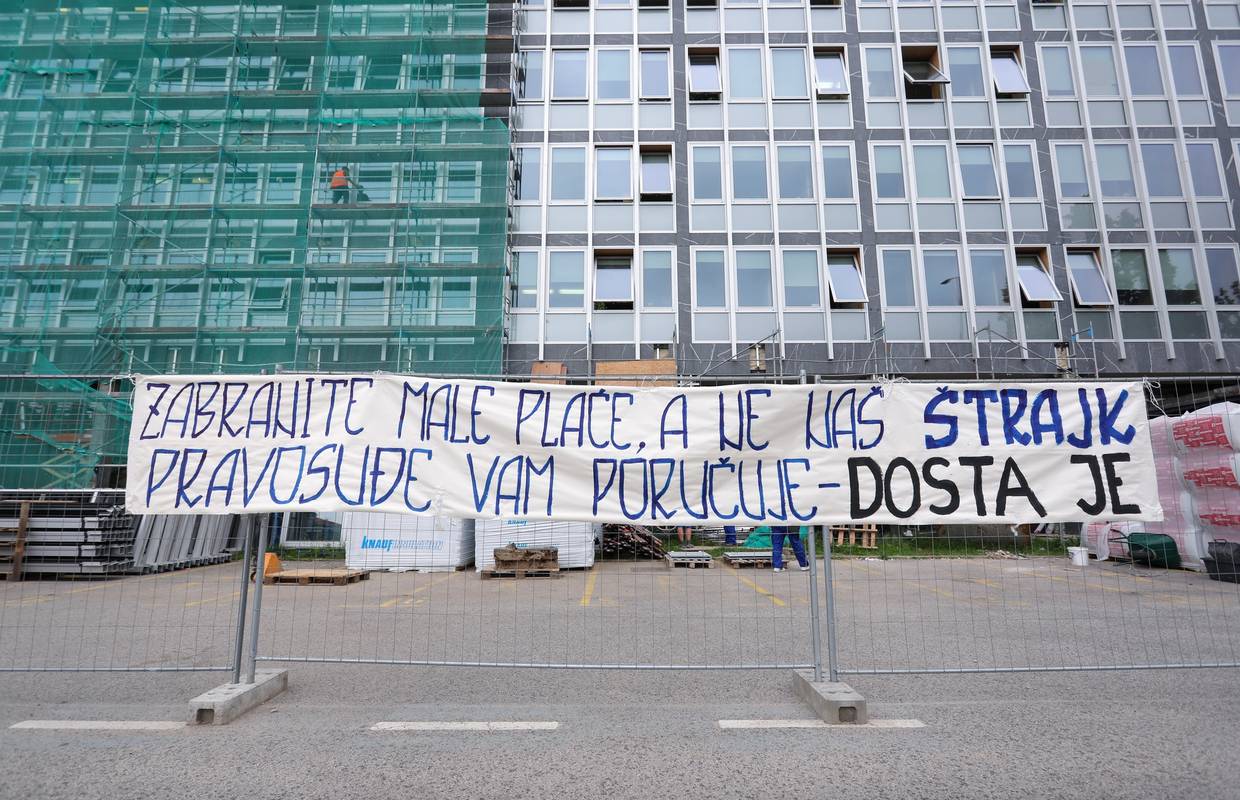 ZABRANITE MALE PLAĆE, A NE NAŠ ŠTRAJK
PRAVOSUĐE VAM PORUČUJE - DOSTA JE
KNAUF INSULATION
KNAUF